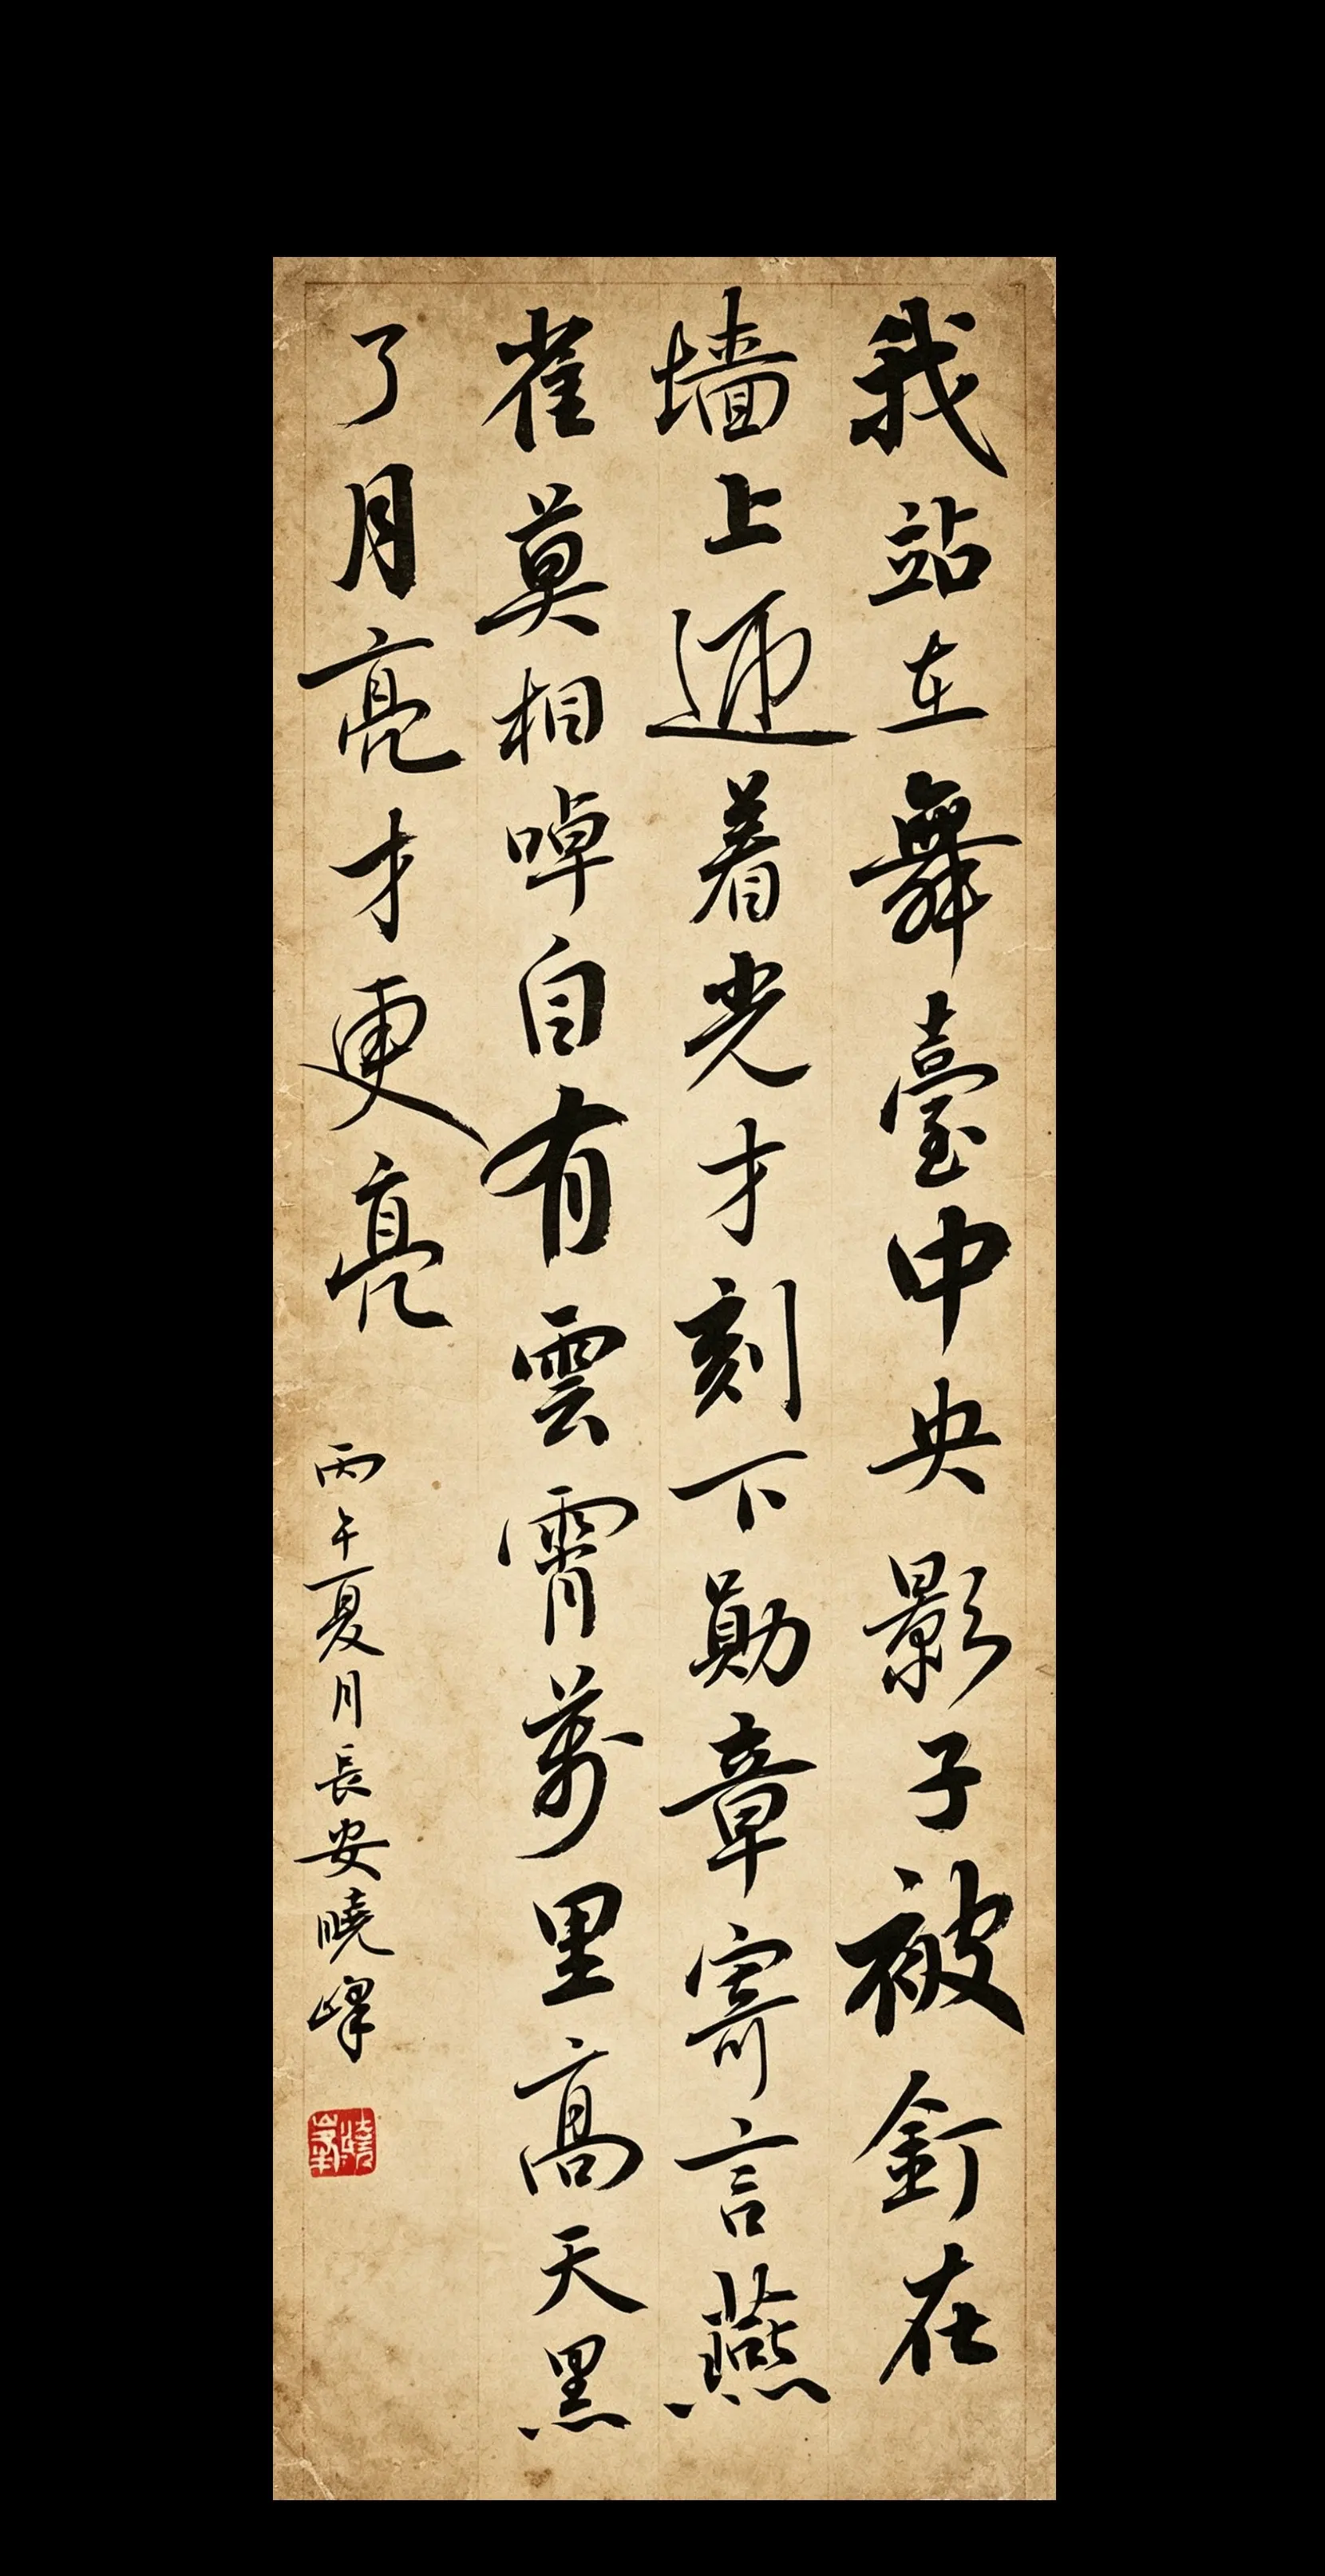 我站在舞臺中央影子被釘在
墙上逆着光才刻下勛章寄言燕
雀莫相啅自有雲霄萬里高天黑
了月亮才更亮
丙午夏月長安曉峰
曉峯